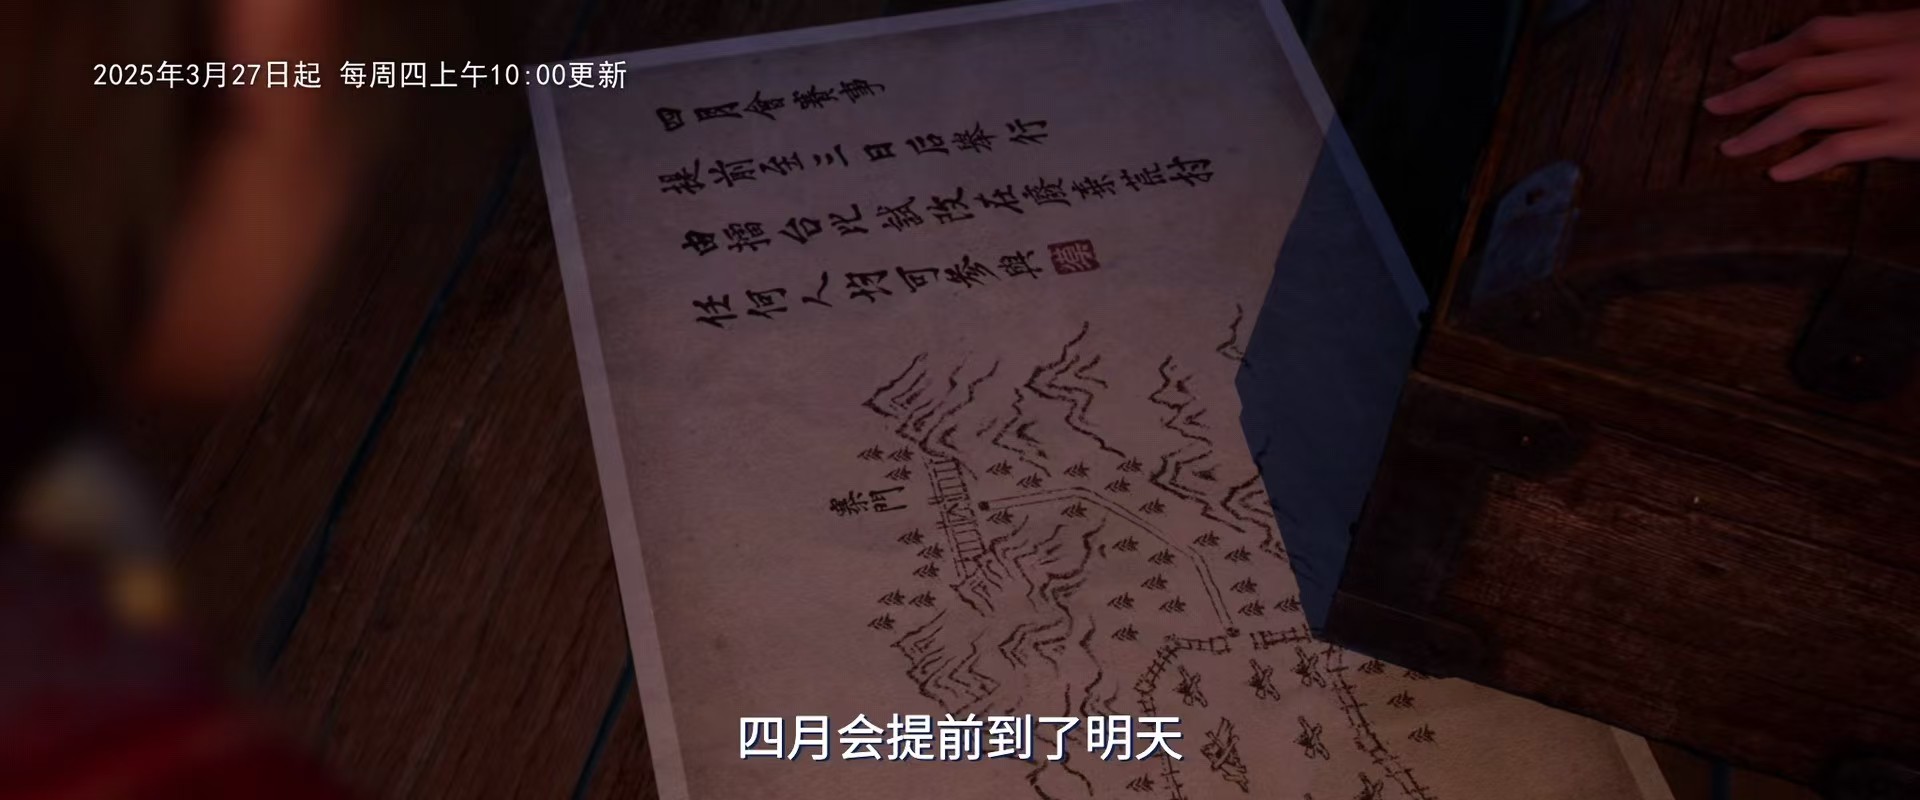 2025年3月27日起 每周四上午10:00更新
四月會賽事
提前至三日后舉行
由擂台比試改在廢棄荒村
任何人均可參與
寨門
四月会提前到了明天